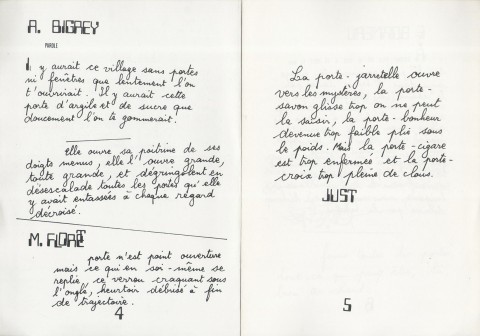 A. BIGREY
PAROLE
Il y aurait ce village sans portes
ni fenêtres que lentement l'on
t'ouvrirait. Il y aurait cette
porte d'argile et de sucre que
doucement l'on te gommerait.
Elle ouvre sa poitrine de ses
doigts menus, elle l'ouvre grande,
toute grande, et dégringolent en
désescalade toutes les portes qu'elle
y avait entassées à chaque regard
décroisé.
M. FLORE
porte n'est point ouverture
mais ce qui en soi-même se
replie, ce verrou craquant sous
l'ongle, heurtoir débusé à fin
de trajectoire.
4
La porte-jarretelle ouvre
vers les mystères, la porte-
savon glisse trop on ne peut
la saisir, la porte-bonheur
devenue trop faible plie sous
le poids. Mais la porte-cigare
est trop enfermée et la porte-
croix trop pleine de clous.
JUST
5